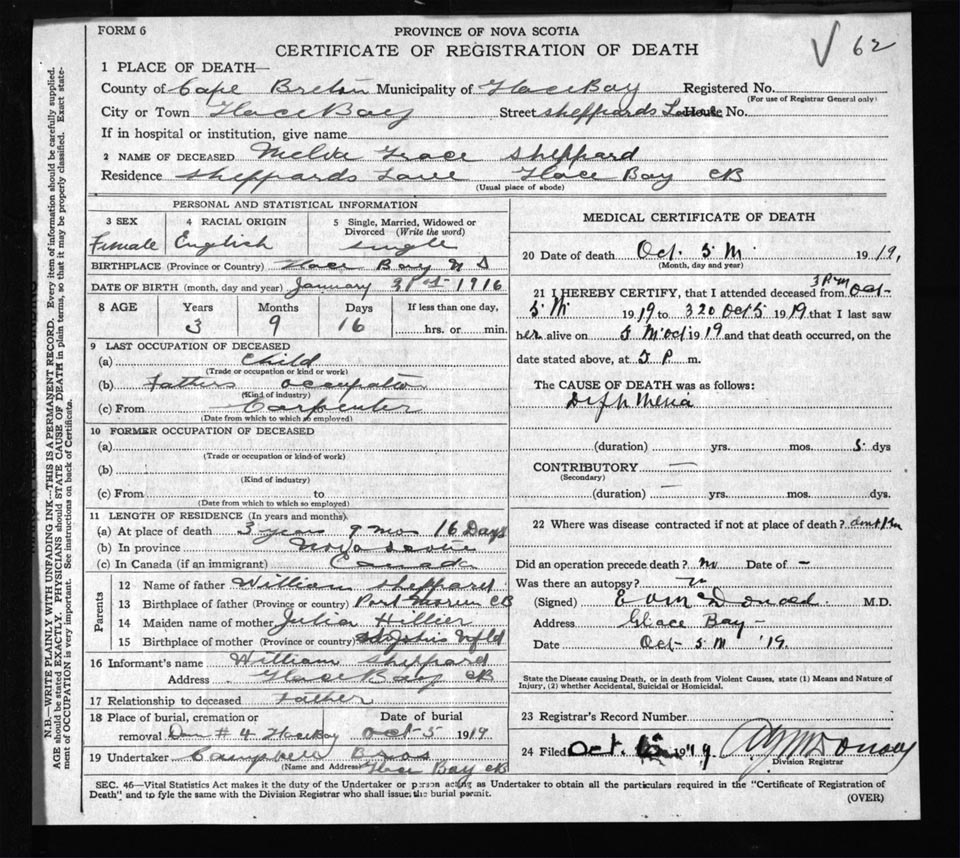 FORM 6
PROVINCE OF NOVA SCOTIA
CERTIFICATE OF REGISTRATION OF DEATH
62
1 PLACE OF DEATH—
County of Cape Breton Municipality of Glace Bay Registered No.
(For use of Registrar General only)
City or Town Glace Bay Street Sheppards Lane House No.
If in hospital or institution, give name
2 NAME OF DECEASED Melda Grace Sheppard
Residence Sheppards Lane Glace Bay CB
(Usual place of abode)
PERSONAL AND STATISTICAL INFORMATION
3 SEX 4 RACIAL ORIGIN 5 Single, Married, Widowed or Divorced (Write the word)
Female English single
BIRTHPLACE (Province or Country) Glace Bay N S
DATE OF BIRTH (month, day and year) January 1916
8 AGE Years Months Days If less than one day,
3 9 16 hrs. or min.
9 LAST OCCUPATION OF DECEASED
(a) Child
(Trade or occupation or kind or work)
(b) Fathers occupation
(Kind of industry)
(c) From Carpenter
(Date from which to which so employed)
10 FORMER OCCUPATION OF DECEASED
(a)
(Trade or occupation or kind of work)
(b)
(Kind of industry)
(c) From to
(Date from which to which so employed)
11 LENGTH OF RESIDENCE (In years and months)
(a) At place of death 3 years 9 mos 16 Days
(b) In province Nova Scotia
(c) In Canada (if an immigrant) Canada
Parents
12 Name of father William Sheppard
13 Birthplace of father (Province or country) Port Morien CB
14 Maiden name of mother Julia Hillier
15 Birthplace of mother (Province or country) St Johns Nfld
16 Informant's name William Sheppard
Address Glace Bay CB
17 Relationship to deceased Father
18 Place of burial, cremation or Date of burial
removal Dom # 4 Glace Bay Oct 5 1919
19 Undertaker Campbell Bros
(Name and Address) Glace Bay CB
MEDICAL CERTIFICATE OF DEATH
20 Date of death Oct. 5 1919,
(Month, day and year)
21 I HEREBY CERTIFY, that I attended deceased from 3 Pm Oct
5 1919 to 320 Oct 5 1919 that I last saw
her alive on 5 Oct 1919 and that death occurred, on the
date stated above, at 5 P m.
The CAUSE OF DEATH was as follows:
Diphtheria
(duration) yrs. mos. 5 dys
CONTRIBUTORY —
(Secondary)
(duration) — yrs. mos. dys.
22 Where was disease contracted if not at place of death?
Did an operation precede death? no Date of –
Was there an autopsy? no
(Signed) McDonald M.D.
Address Glace Bay –
Date Oct 5 '19.
State the Disease causing Death, or in death from Violent Causes, state (1) Means and Nature of Injury, (2) whether Accidental, Suicidal or Homicidal.
23 Registrar's Record Number
24 Filed Oct. 1919
Division Registrar
SEC. 46—Vital Statistics Act makes it the duty of the Undertaker or person acting as Undertaker to obtain all the particulars required in the "Certificate of Registration of
Death" and to fyle the same with the Division Registrar who shall issue the burial permit.
(OVER)
N.B.—WRITE PLAINLY WITH UNFADING INK—THIS IS A PERMANENT RECORD. Every item of information should be carefully supplied.
AGE should be stated EXACTLY. PHYSICIANS should STATE CAUSE OF DEATH in plain terms, so that it may be properly classified. Exact state-
ment of OCCUPATION is very important. See instructions on back of Certificate.